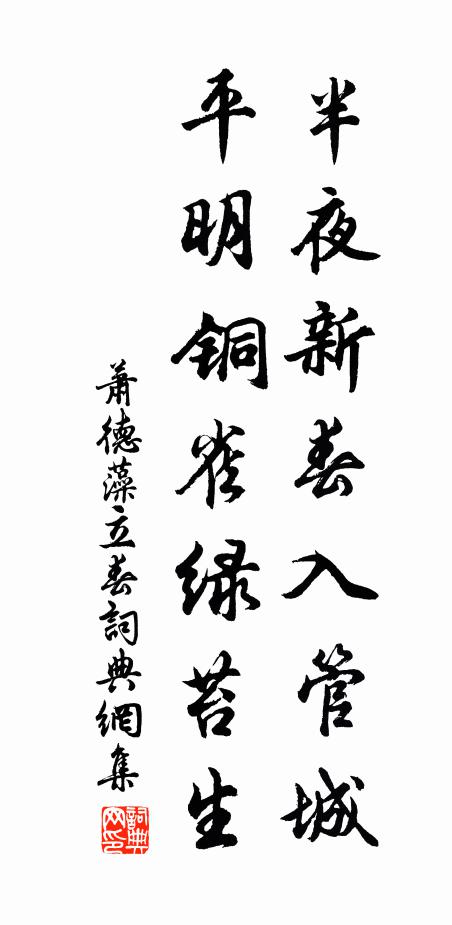 半夜新春入管城
平明铜雀绿苔生
蕭德藻立春詞典網集
詞典网印